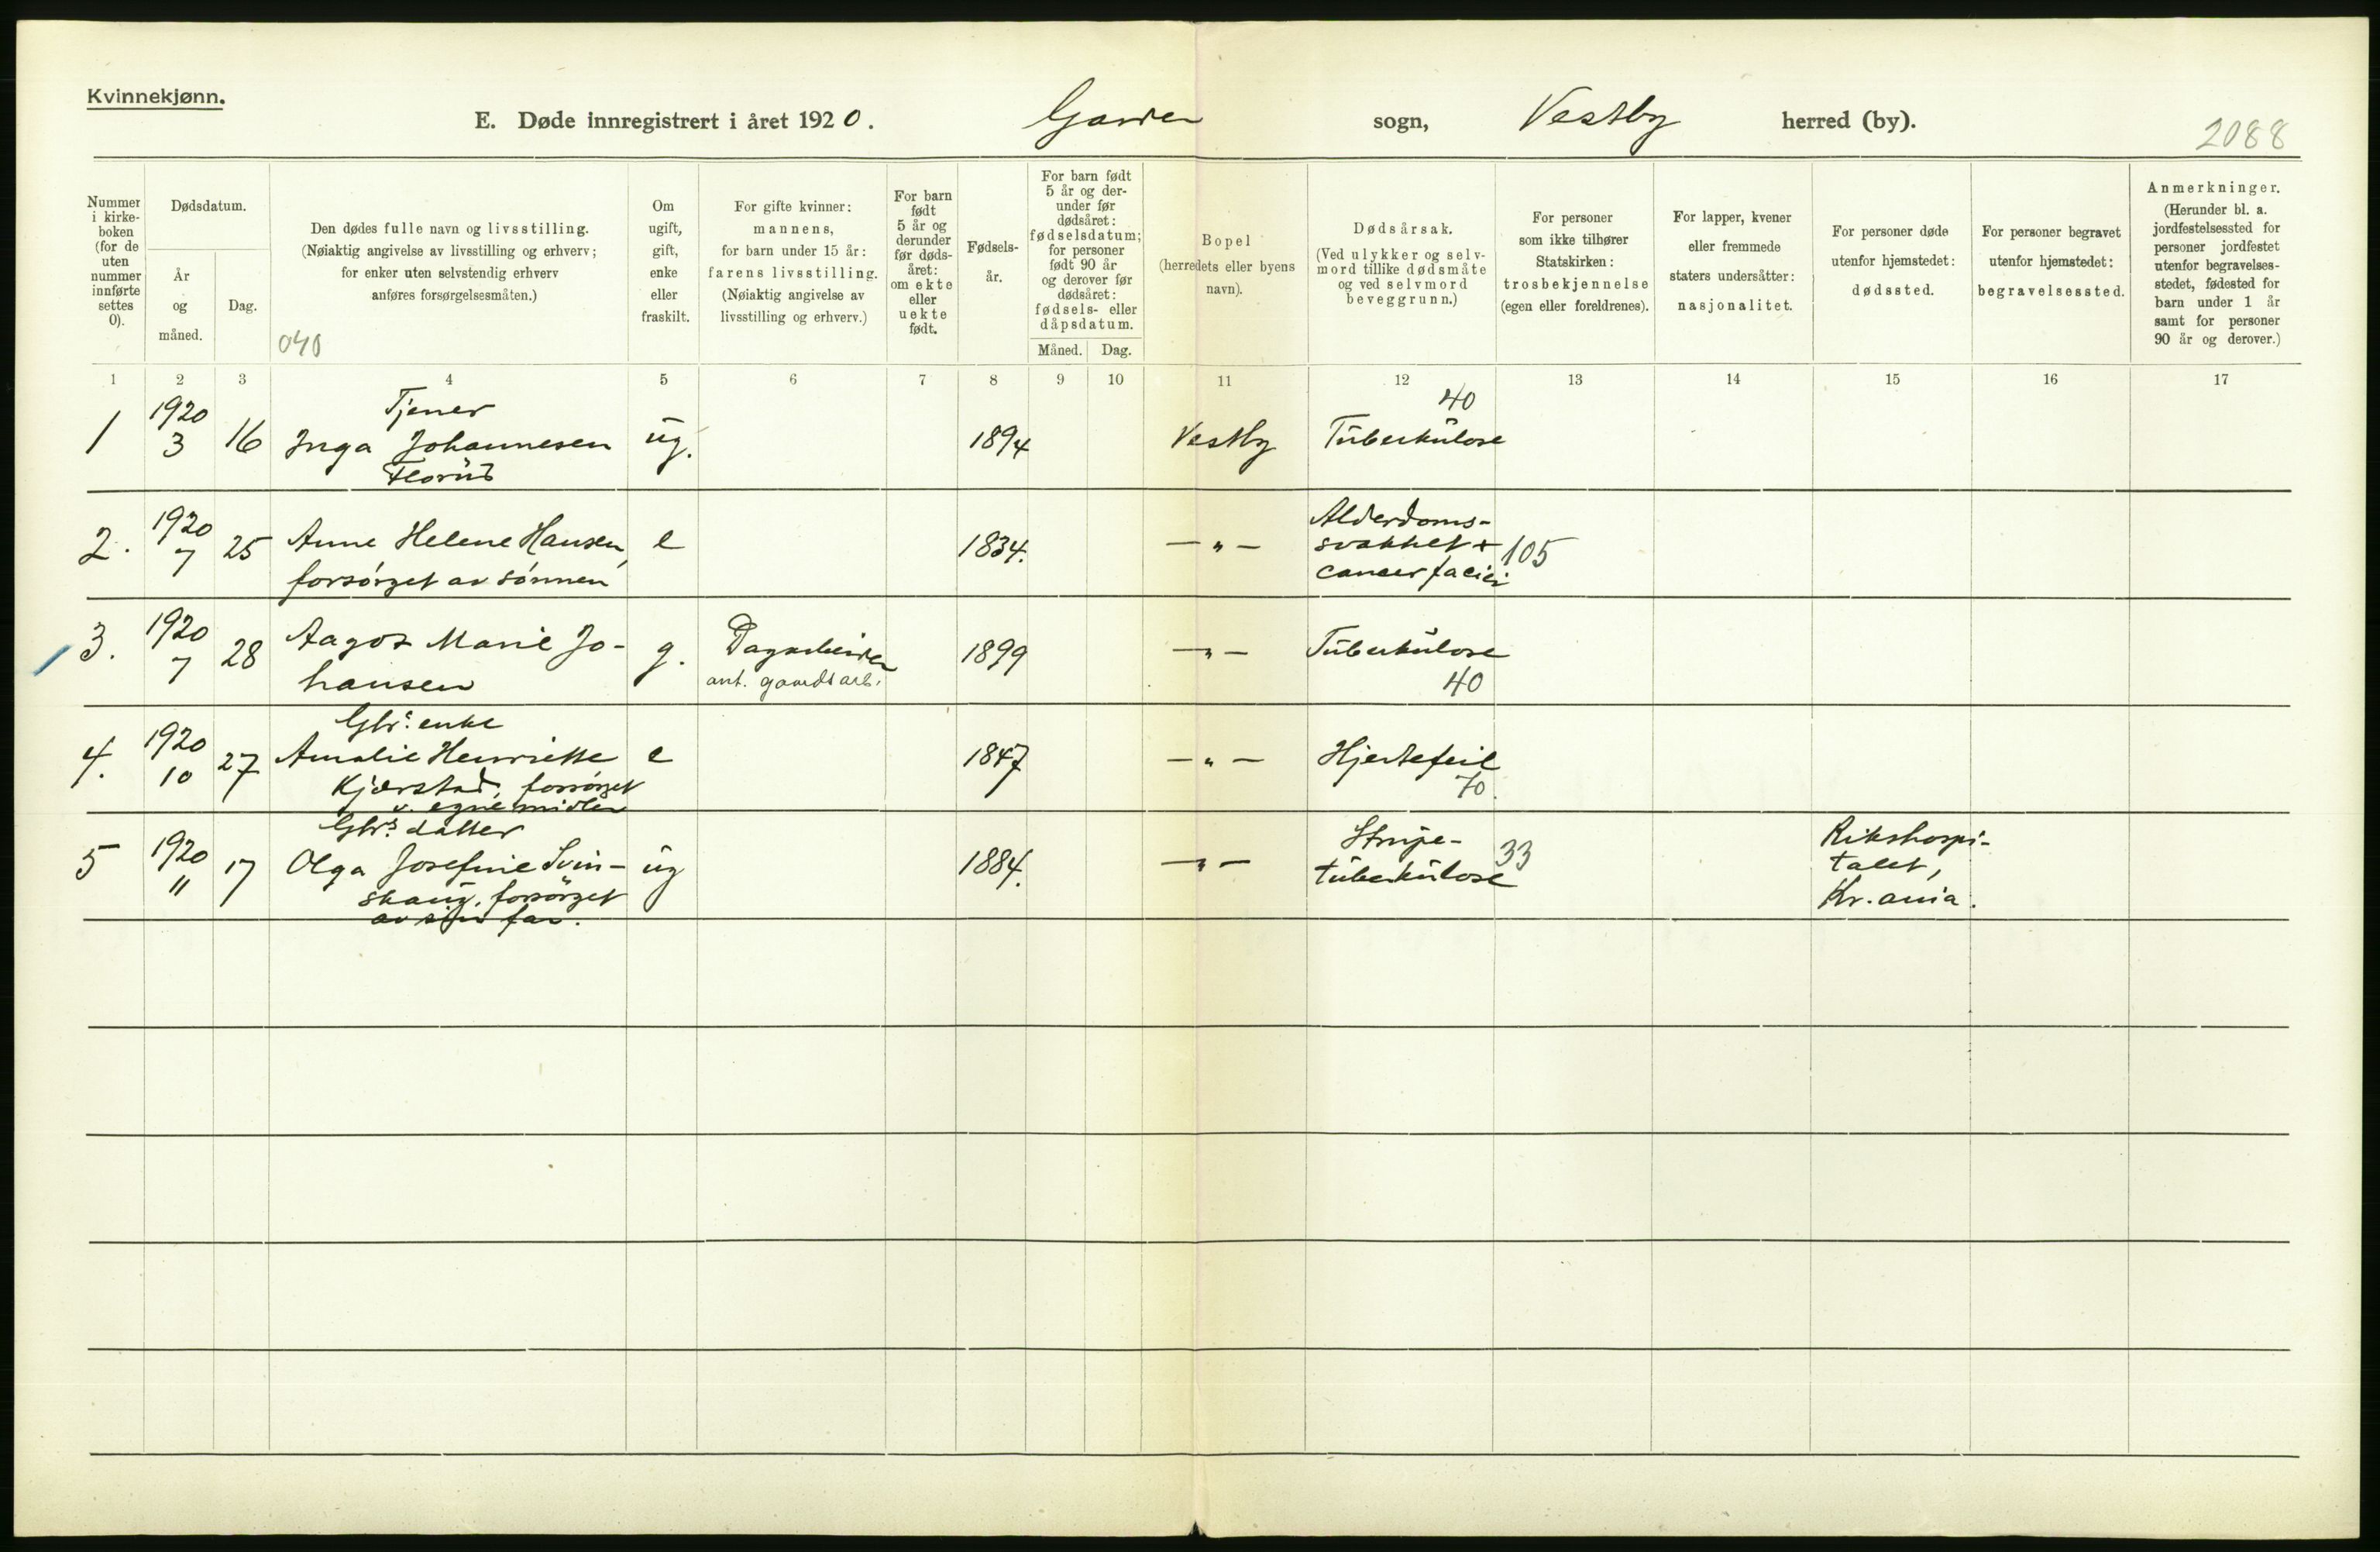 Kvinnekjønn.
E. Døde innregistrert i året 1920. Garder sogn, Vestby herred (by).
2088
Nummer i kirke-boken (for de uten nummer innførte settes 0).
Dødsdatum.
År og måned.
Dag.
Den dødes fulle navn og livsstilling.
(Nøiaktig angivelse av livsstilling og erhverv;
for enker uten selvstendig erhverv
anføres forsørgelsesmåten.)
040
Om ugift, gift, enke eller fraskilt.
For gifte kvinner:
mannens,
for barn under 15 år:
farens livsstilling.
(Nøiaktig angivelse av
livsstilling og erhverv.)
For barn født 5 år og derunder før døds-året: om ekte eller uekte født.
Fødsels-år.
For barn født 5 år og der-under før dødsåret: fødselsdatum; for personer født 90 år og derover før dødsåret: fødsels- eller dåpsdatum.
Måned. Dag.
Bopel
(herredets eller byens
navn).
Dødsårsak.
(Ved ulykker og selv-
mord tillike dødsmåte
og ved selvmord
beveggrunn.)
For personer
som ikke tilhører
Statskirken:
trosbekjennelse
(egen eller foreldrenes).
For lapper, kvener
eller fremmede
staters undersåtter:
nasjonalitet.
For personer døde
utenfor hjemstedet:
dødssted.
For personer begravet
utenfor hjemstedet:
begravelsessted.
Anmerkninger.
(Herunder bl. a.
jordfestelsessted for
personer jordfestet
utenfor begravelses-
stedet, fødested for
barn under 1 år
samt for personer
90 år og derover.)
1 2 3 4 5 6 7 8 9 10 11 12 13 14 15 16 17
1 1920 3 16 Tjener Inga Johannesen Florud ug. 1894 Vestby Tuberkulose 40
2. 1920 7 25 Anne Helene Hansen, forsørget av sønnen e 1834. —"— Alderdoms-svakhet + cancer faciei 105
3. 1920 7 28 Aagot Marie Jo-hansen g. Dagarbeider ant. gaardsarb. 1899 —"— Tuberkulose 40
4. 1920 10 27 Gbr. enke Amalie Henriette Kjærstad, forsørget v. egne midler e 1847 —"— Hjertefeil 70.
5 1920 11 17 Gbrs datter Olga Josefine Svin-skaug, forsørget av sin far. ug 1884. —"— Strupe-tuberkulose 33 Rikshospi-talet, Kr.ania.